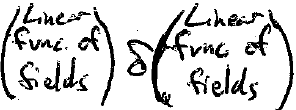 (Linear func. of fields) δ (Linear func. of fields)